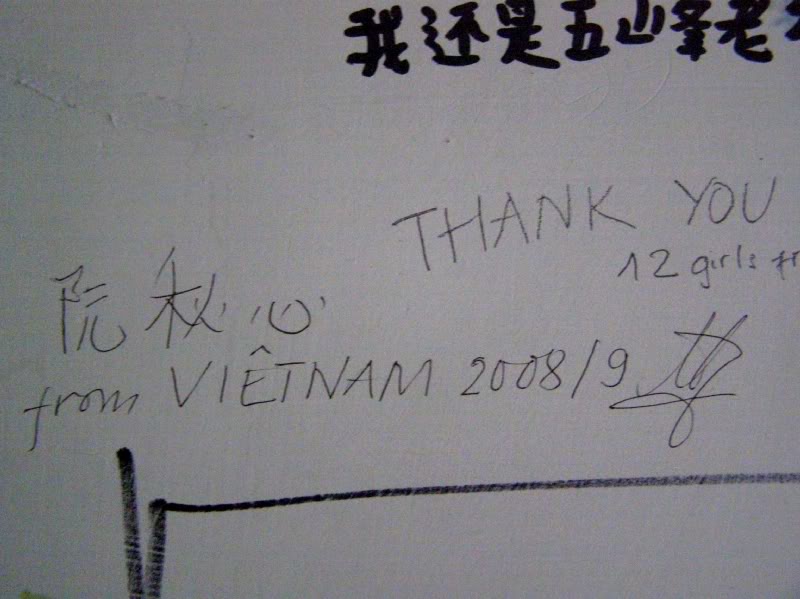 我还是五峰老
THANK YOU
12 girls fr
阮秋心
from VIÊTNAM 2008/9